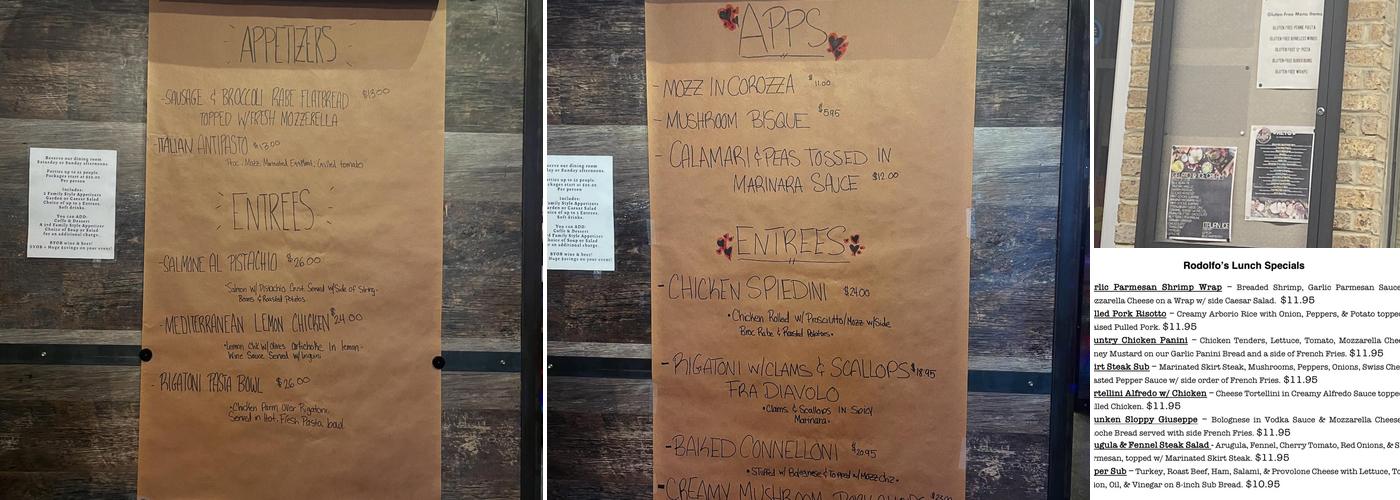 APPETIZERS
-SAUSAGE & BROCCOLI RABE FLATBREAD $13.00
TOPPED W/FRESH MOZZERELLA
-ITALIAN ANTIPASTO $13.00
ENTREES
-SALMONE AL PISTACHIO $26.00
•Salmon w/ Pistachio Crust Served w/Side of String-
Beans & Roasted Potatoes.
-MEDITERRANEAN LEMON CHICKEN $24.00
•Lemon Chk w/Olives Artichoke in lemon-
Wine Sauce Served w/linguni
-RIGATONI PASTA BOWL $26.00
•Chicken Parm Over Rigatoni,
Served in Hot, Fresh Pasta bowl
Reserve our dining room
Saturday or Sunday afternoons.
Parties up to 22 people.
Packages start at $20.00
Per person
Includes:
2 Family Style Appetizers
Garden or Caesar Salad
Choice of up to 3 Entrees.
Soft drinks.
You can ADD:
Coffe & Dessert
A 3rd Family Style Appetizer
Choice of Soup or Salad
for an additional charge.
BYOB wine & beer!
BYOB = Huge $avings on your event!
APPS
-MOZZ IN COROZZA $11.00
-MUSHROOM BISQUE $5.95
-CALAMARI & PEAS TOSSED IN
MARINARA SAUCE $12.00
ENTREES
-CHICKEN SPIEDINI $24.00
•Chicken Rolled w/Prosciutto/Mozz w/Side
Broc Rabe & Roasted Potatoes•
-RIGATONI W/CLAMS & SCALLOPS $18.95
FRA DIAVOLO
•Clams & Scallops IN Spicy
Marinara•
-BAKED CONNELLONI $20.95
•Stuffed w/ Bolognese & Topped w/Mozz Chz•
-CREAMY MUSHROOM
Gluten Free Menu Items
GLUTEN FREE PENNE PASTA
GLUTEN FREE BONELESS WINGS
GLUTEN FREE 12" PIZZA
GLUTEN FREE BURGER BUNS
GLUTEN FREE WRAPS
ITALIAN ICE
Rodolfo's Lunch Specials
rlic Parmesan Shrimp Wrap – Breaded Shrimp, Garlic Parmesan Sauce
zzarella Cheese on a Wrap w/ side Caesar Salad. $11.95
lled Pork Risotto – Creamy Arborio Rice with Onion, Peppers, & Potato toppe
aised Pulled Pork. $11.95
untry Chicken Panini – Chicken Tenders, Lettuce, Tomato, Mozzarella Chee
ney Mustard on our Garlic Panini Bread and a side of French Fries. $11.95
irt Steak Sub – Marinated Skirt Steak, Mushrooms, Peppers, Onions, Swiss Che
asted Pepper Sauce w/ side order of French Fries. $11.95
rtellini Alfredo w/ Chicken – Cheese Tortellini in Creamy Alfredo Sauce toppe
lled Chicken. $11.95
unken Sloppy Giuseppe – Bolognese in Vodka Sauce & Mozzarella Cheese
oche Bread served with side French Fries. $11.95
ugula & Fennel Steak Salad - Arugula, Fennel, Cherry Tomato, Red Onions, & S
rmesan, topped w/ Marinated Skirt Steak. $11.95
per Sub – Turkey, Roast Beef, Ham, Salami, & Provolone Cheese with Lettuce, To
ion, Oil, & Vinegar on 8-inch Sub Bread. $10.95